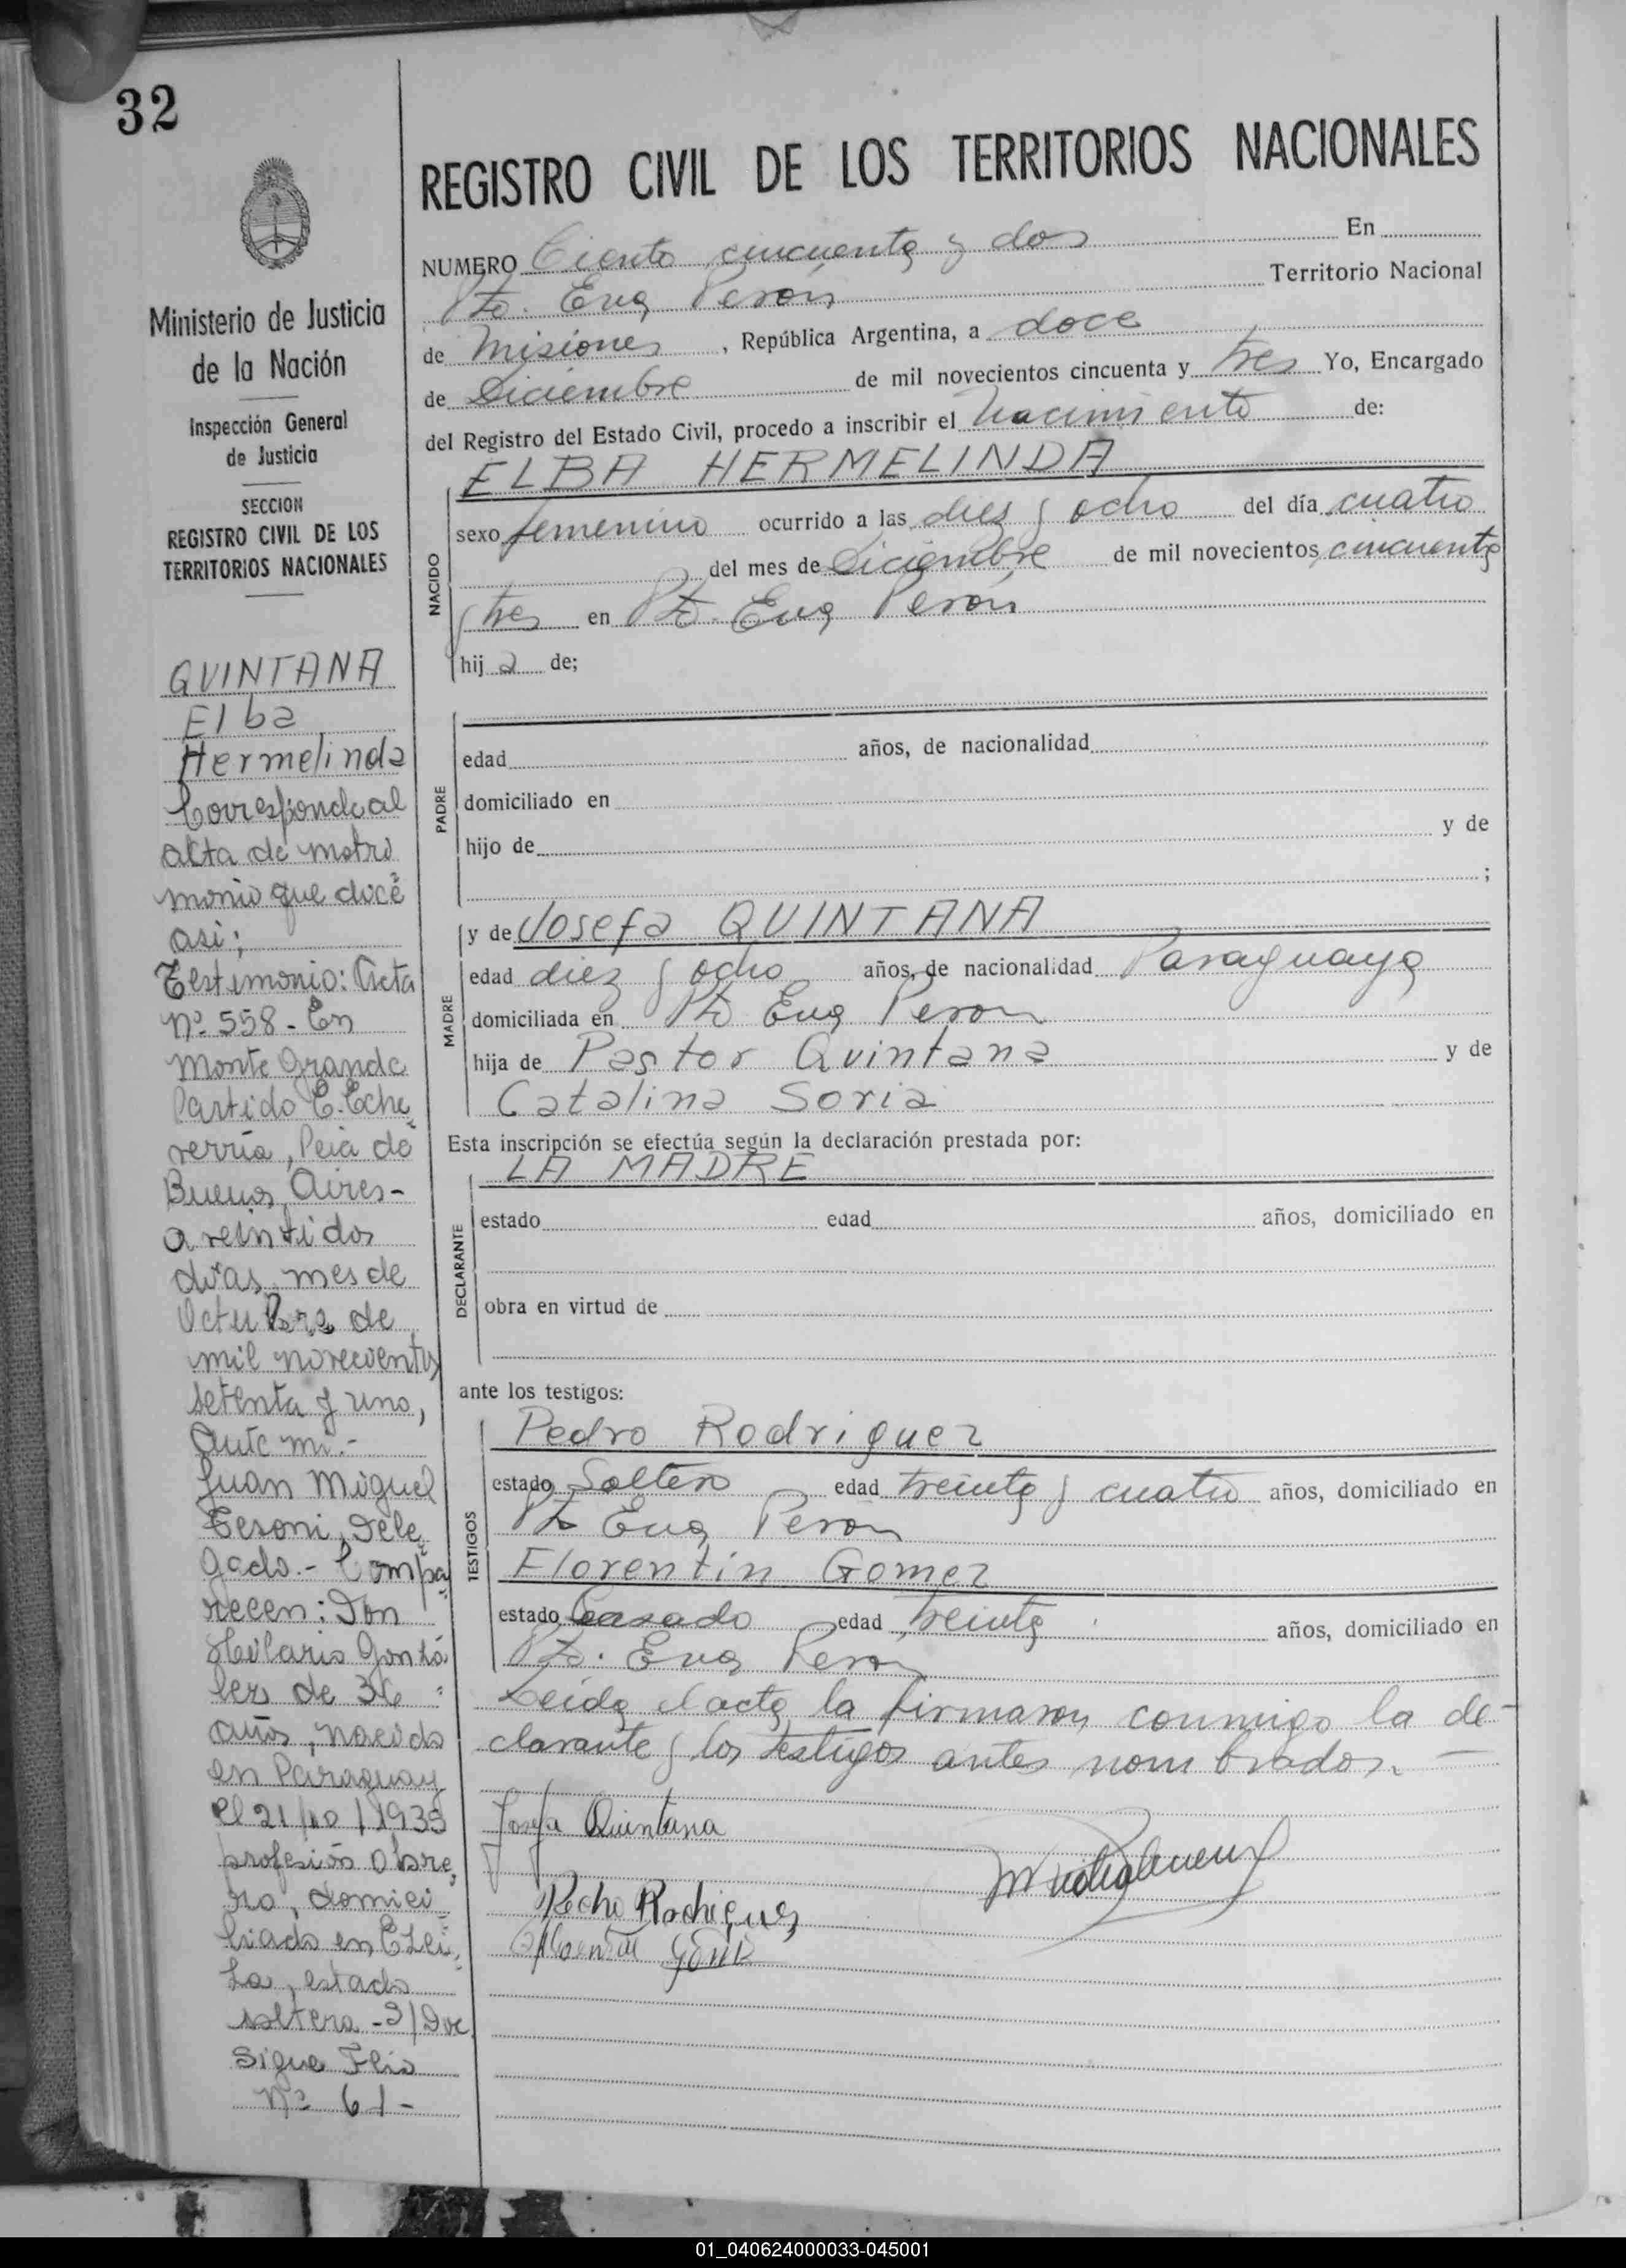 32
Ministerio de Justicia
de la Nación
Inspección General
de Justicia
SECCION
REGISTRO CIVIL DE LOS
TERRITORIOS NACIONALES
QUINTANA
Elba
Hermelinda
Corresponde al
acta de matri
monio que dice
asi;
Testimonio: Acta
Nº 558 - En
Monte Grande
Partido E. Eche
verría, Pcia de
Buenos Aires -
a veintidos
días, mes de
Octubre de
mil novecientos
setenta y uno,
Ante mi.-
Juan Miguel
Tesoni, Dele
gado.- Compa
recen: Don
Hilario Gonzá
lez de 36
años, nacido
en Paraguay
el 21/10/1935
profesión obre
ro, domici
liado en Ezei
za, estado
soltero - S/Doc
Sigue Flio
Nº 61 -
REGISTRO CIVIL DE LOS TERRITORIOS NACIONALES
NUMERO Ciento cincuenta y dos En
Pto. Eva Perón Territorio Nacional
de Misiones, República Argentina, a doce
de Diciembre de mil novecientos cincuenta y tres Yo, Encargado
del Registro del Estado Civil, procedo a inscribir el nacimiento de:
ELBA HERMELINDA
NACIDO
sexo femenino ocurrido a las diez y ocho del día cuatro
del mes de Diciembre de mil novecientos cincuenta
y tres en Pto. Eva Perón
hija de;
PADRE
edad años, de nacionalidad
domiciliado en
hijo de y de
;
y de Josefa QUINTANA
MADRE
edad diez y ocho años, de nacionalidad Paraguaya
domiciliada en Pto Eva Peron
hija de Pastor Quintana y de
Catalina Soria
Esta inscripción se efectúa según la declaración prestada por:
LA MADRE
DECLARANTE
estado edad años, domiciliado en
obra en virtud de
ante los testigos:
Pedro Rodriguez
TESTIGOS
estado Soltero edad treinta y cuatro años, domiciliado en
Pto Eva Perón
Florentin Gomez
estado Casado edad treinta años, domiciliado en
Pto. Eva Peron
Leida el acta la firmaron conmigo la de-
clarante y los testigos antes nombrados. —
Josefa Quintana
01_040624000033-045001